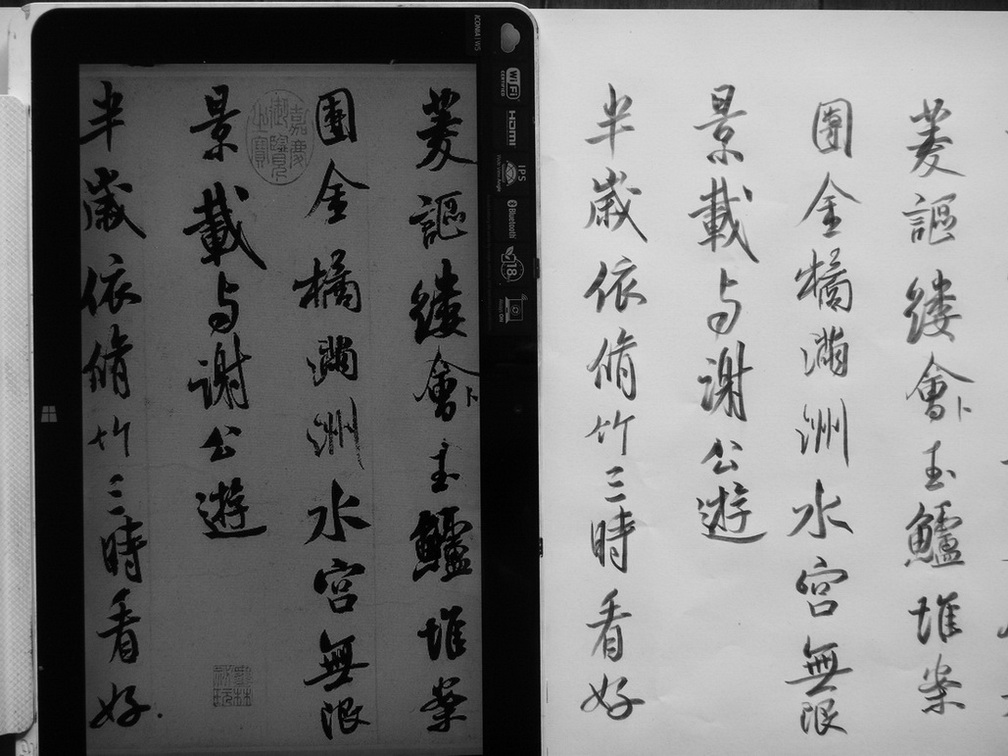 菱謳縷會卜玉鱸堆案
團金橘滿洲水宮無限
景載与謝公遊
半歲依脩竹三時看好
嘉慶御覽之寶
ICONIA W5
WiFi
CERTIFIED
HDMI
IPS
Bluetooth
18
菱謳縷會卜玉鱸堆案
團金橘滿洲水宮無限
景載与謝公遊
半歲依脩竹三時看好